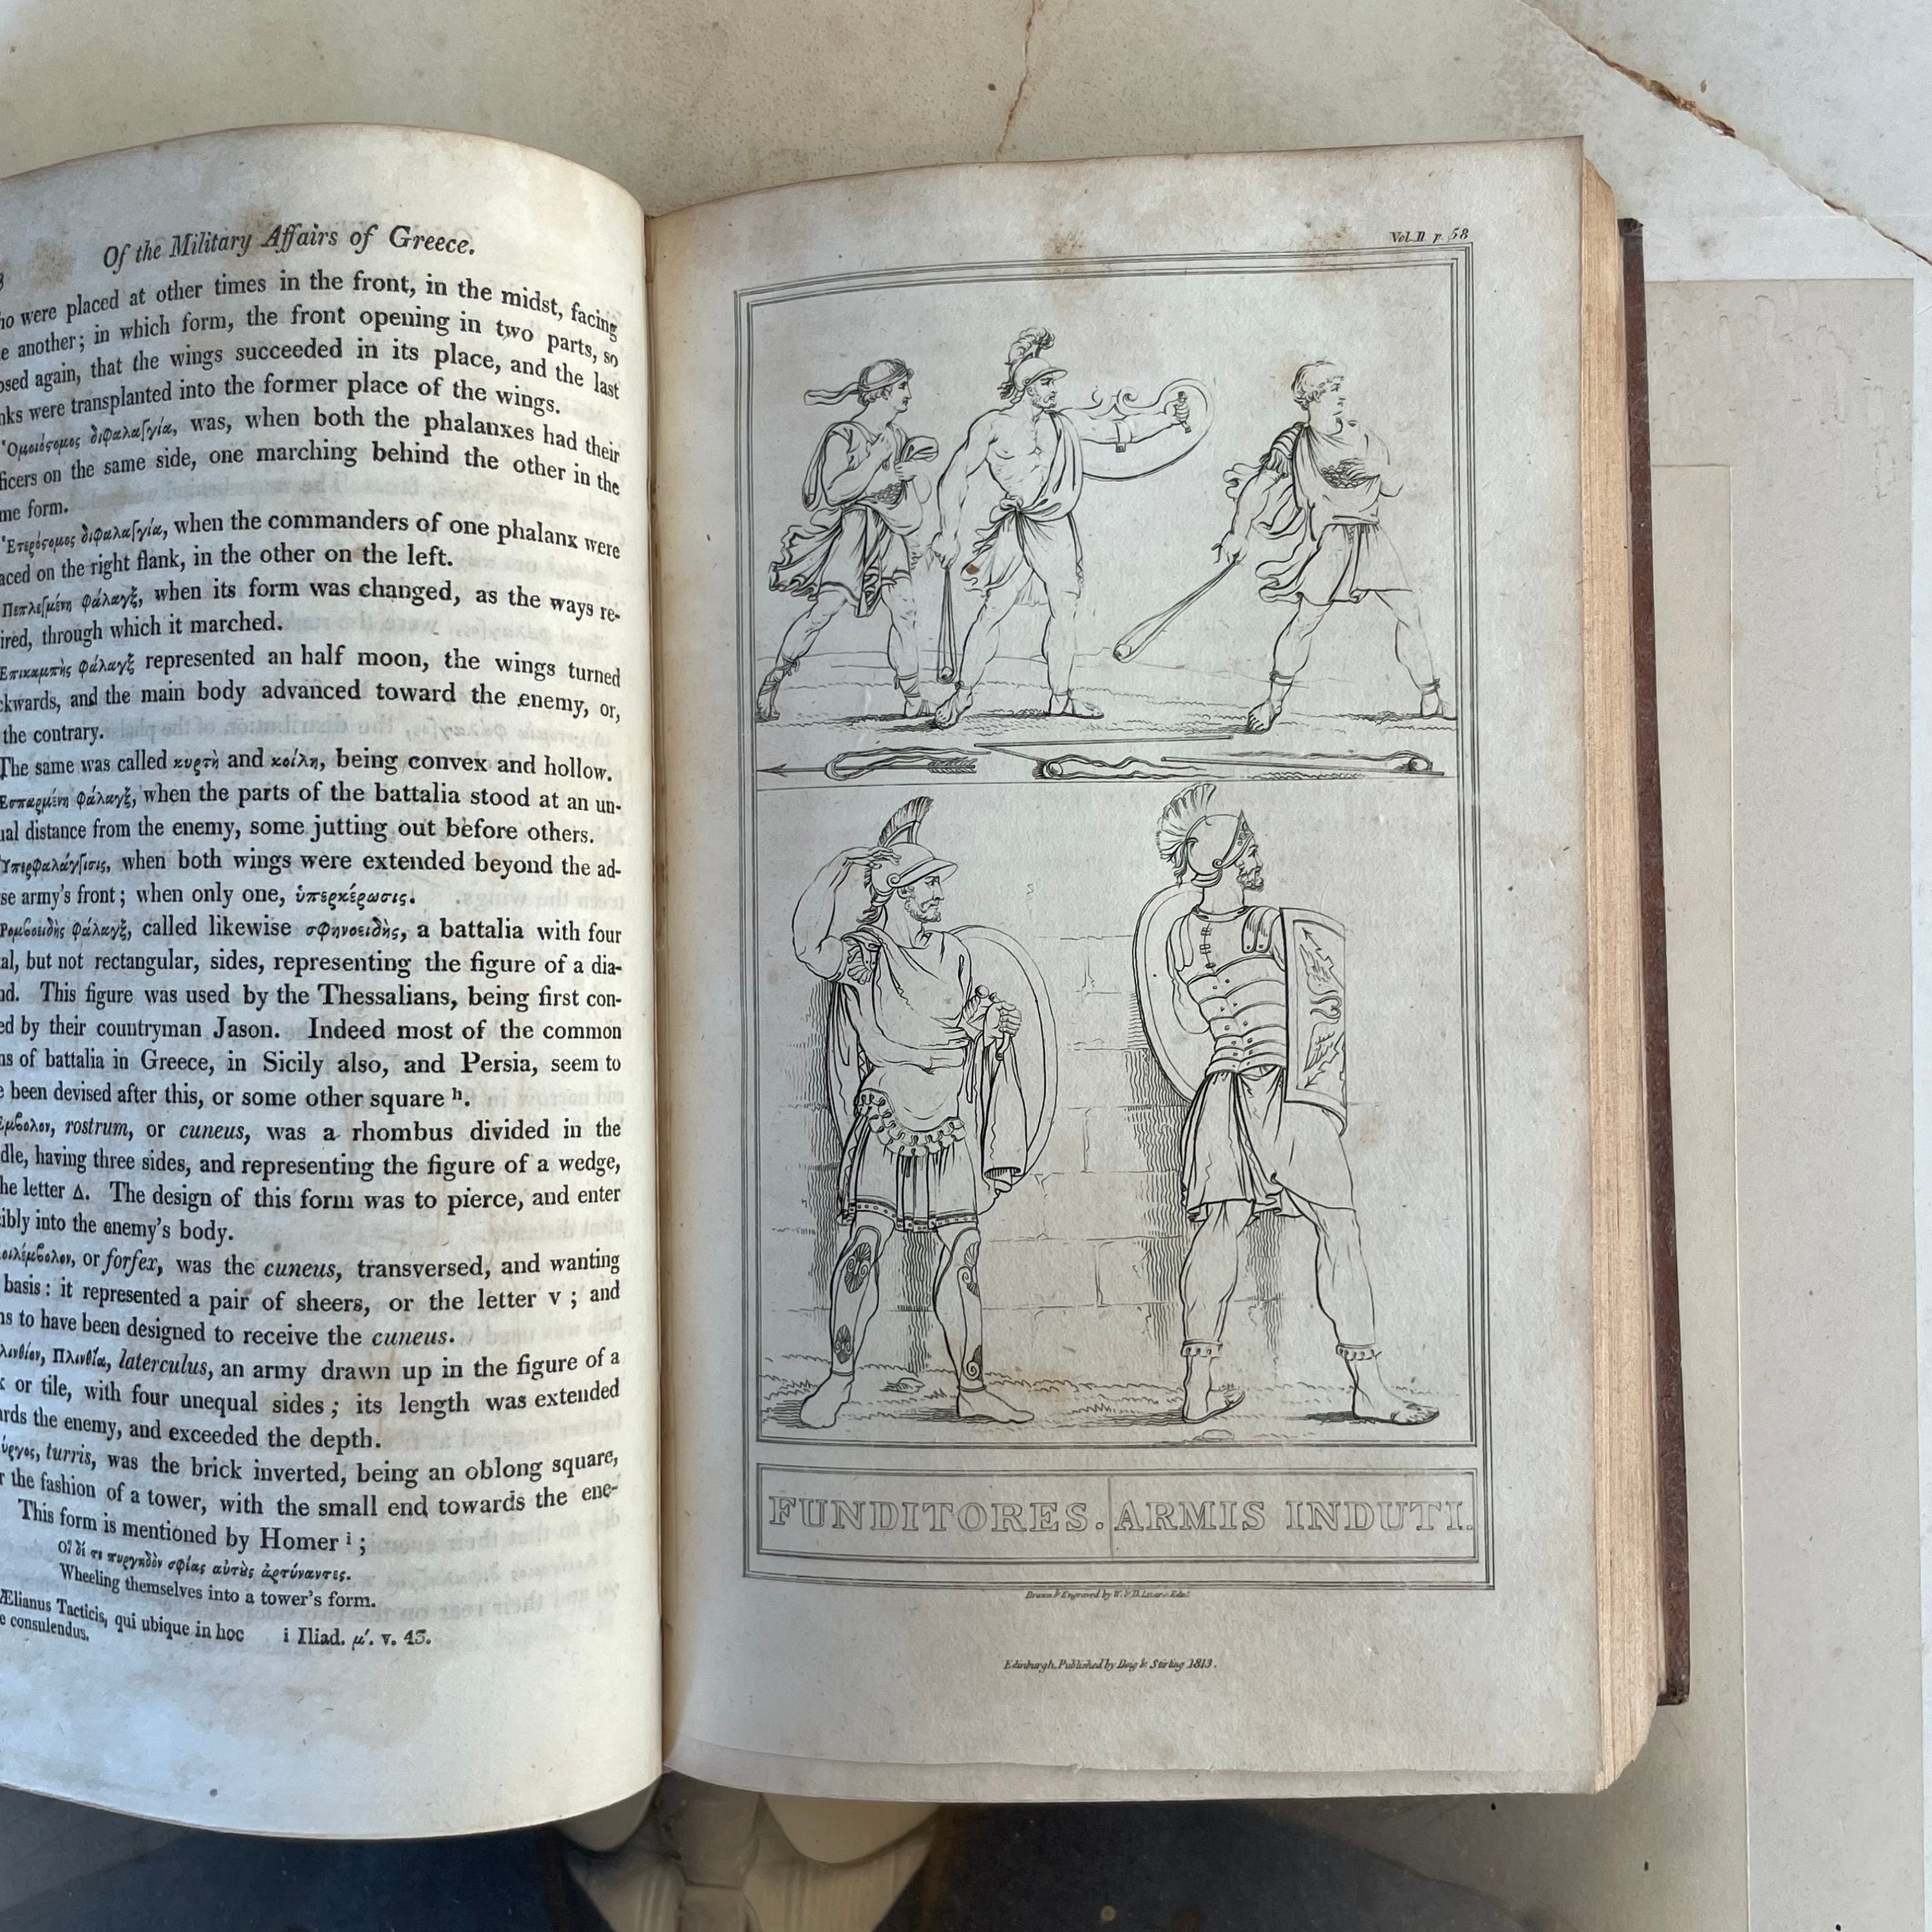 Of the Military Affairs of Greece.
ho were placed at other times in the front, in the midst, facing
e another; in which form, the front opening in two parts, so
osed again, that the wings succeeded in its place, and the last
nks were transplanted into the former place of the wings.
Ὁμοιόςομος διφαλαγγία, was, when both the phalanxes had their
ficers on the same side, one marching behind the other in the
me form.
Ἑτερόςομος διφαλαγγία, when the commanders of one phalanx were
aced on the right flank, in the other on the left.
Πεπλεγμένη φάλαγξ, when its form was changed, as the ways re-
ired, through which it marched.
Επικαμπὴς φάλαγξ represented an half moon, the wings turned
ckwards, and the main body advanced toward the enemy, or,
the contrary.
The same was called κυρτὴ and κοίλη, being convex and hollow.
Εσπαρμένη φάλαγξ, when the parts of the battalia stood at an un-
ual distance from the enemy, some jutting out before others.
Υπερφαλάγγισις, when both wings were extended beyond the ad-
se army's front; when only one, ὑπερκέρωσις.
Ρομβοειδὴς φάλαγξ, called likewise σφηνοειδὴς, a battalia with four
al, but not rectangular, sides, representing the figure of a dia-
nd. This figure was used by the Thessalians, being first con-
ed by their countryman Jason. Indeed most of the common
ns of battalia in Greece, in Sicily also, and Persia, seem to
e been devised after this, or some other square h.
Εμβολον, rostrum, or cuneus, was a rhombus divided in the
dle, having three sides, and representing the figure of a wedge,
he letter Δ. The design of this form was to pierce, and enter
ibly into the enemy's body.
οιλέμβολον, or forfex, was the cuneus, transversed, and wanting
basis: it represented a pair of sheers, or the letter v; and
ns to have been designed to receive the cuneus.
λινθίον, Πλινθία, laterculus, an army drawn up in the figure of a
k or tile, with four unequal sides; its length was extended
ards the enemy, and exceeded the depth.
ύργος, turris, was the brick inverted, being an oblong square,
r the fashion of a tower, with the small end towards the ene-
This form is mentioned by Homer i;
Οἵ δέ τε πυργηδὸν σφέας αὐτὺς ἀρτύναντες.
Wheeling themselves into a tower's form.
Ælianus Tacticis, qui ubique in hoc
e consulendus.
i Iliad. μ'. v. 43.
Vol. II p. 58
FUNDITORES. ARMIS INDUTI.
Drawn & Engraved by W. & D. Lizars Edinr.
Edinburgh, Published by Doig & Stirling 1813.